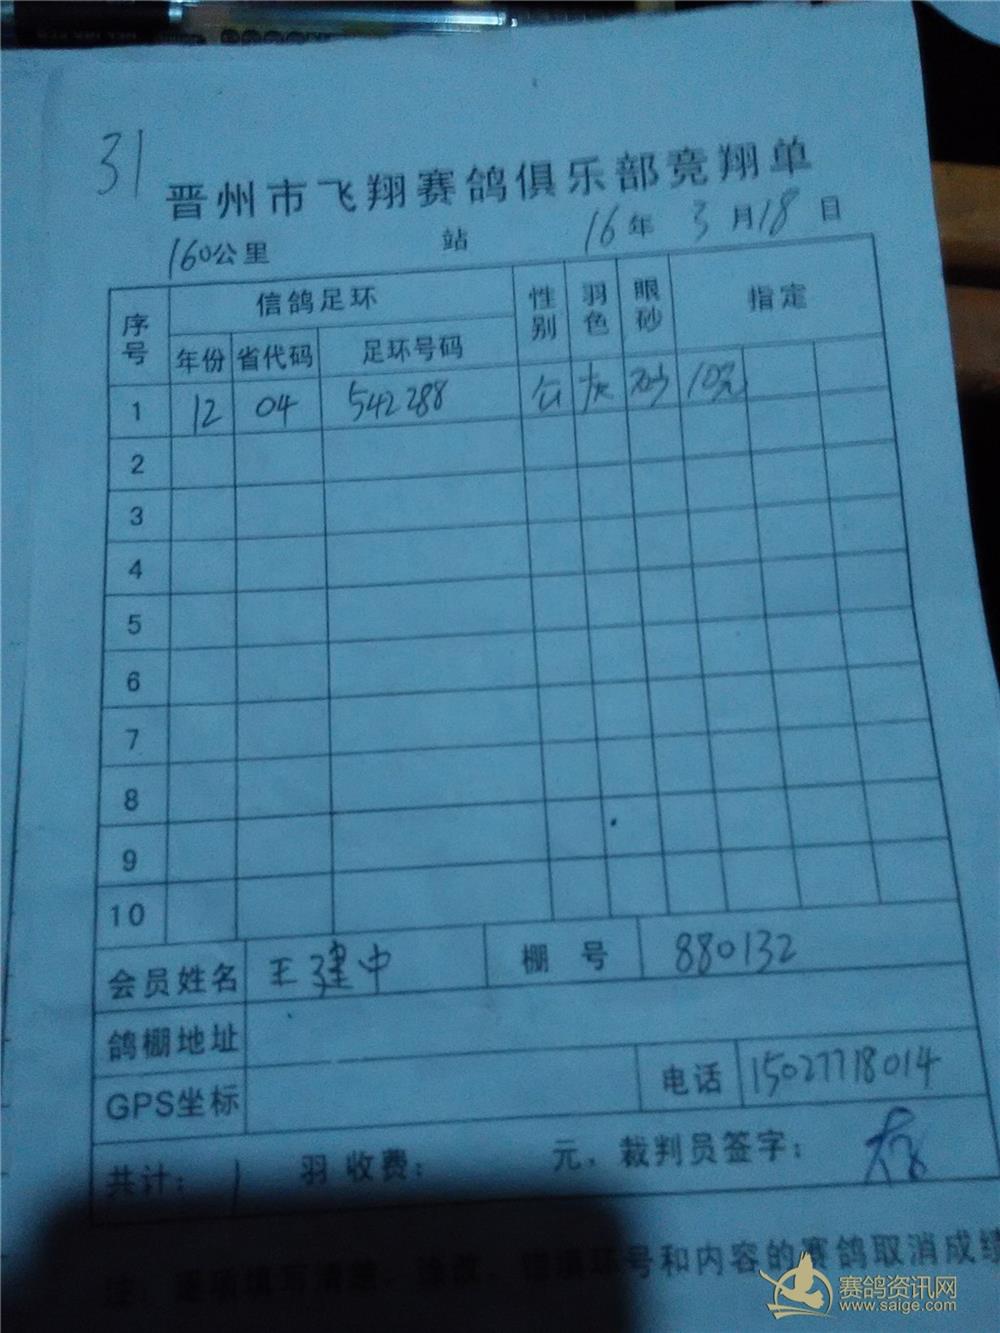 31
晋州市飞翔赛鸽俱乐部竞翔单
160公里 站 16年 3月18日
序号 信鸽足环 性别 羽色 眼砂 指定
年份 省代码 足环号码
1 12 04 542288 公 灰 砂 10元
2
3
4
5
6
7
8
9
10
会员姓名 王建中 棚号 880132
鸽棚地址
GPS坐标 电话 15027718014
共计: 1 羽 收费: 元、裁判员签字:
号和内容的赛鸽取消成绩
赛鸽资讯网
www.saige.com